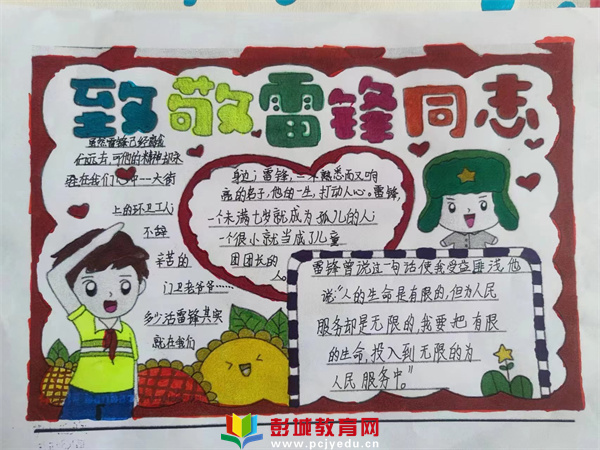 致敬雷锋同志
虽然雷锋已经离会
们远去,可他的精神却永
驻在我们心中---大街
上的环卫工人
不辞
辛苦的
门卫老爷爷……
多少活雷锋其实
就在我们
身边;雷锋,一个熟悉而又响
亮的名子,他的一生,打动人心,雷锋,
一个未满七岁就成为孤儿的人
一个很小就当成了儿童
团团长的
人。
雷锋曾说过一句话使我受益匪浅他
说:"人的生命是有限的,但为人民
服务却是无限的,我要把有限
的生命,投入到无限的为
人民服务中。"
彭城教育网
www.pcjyedu.cn